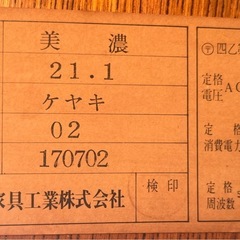 美濃
21.1
ケヤキ
02
170702
家具工業株式会社
検印
〒四乙
定格電圧 AC
定格消費電力
定格周波数